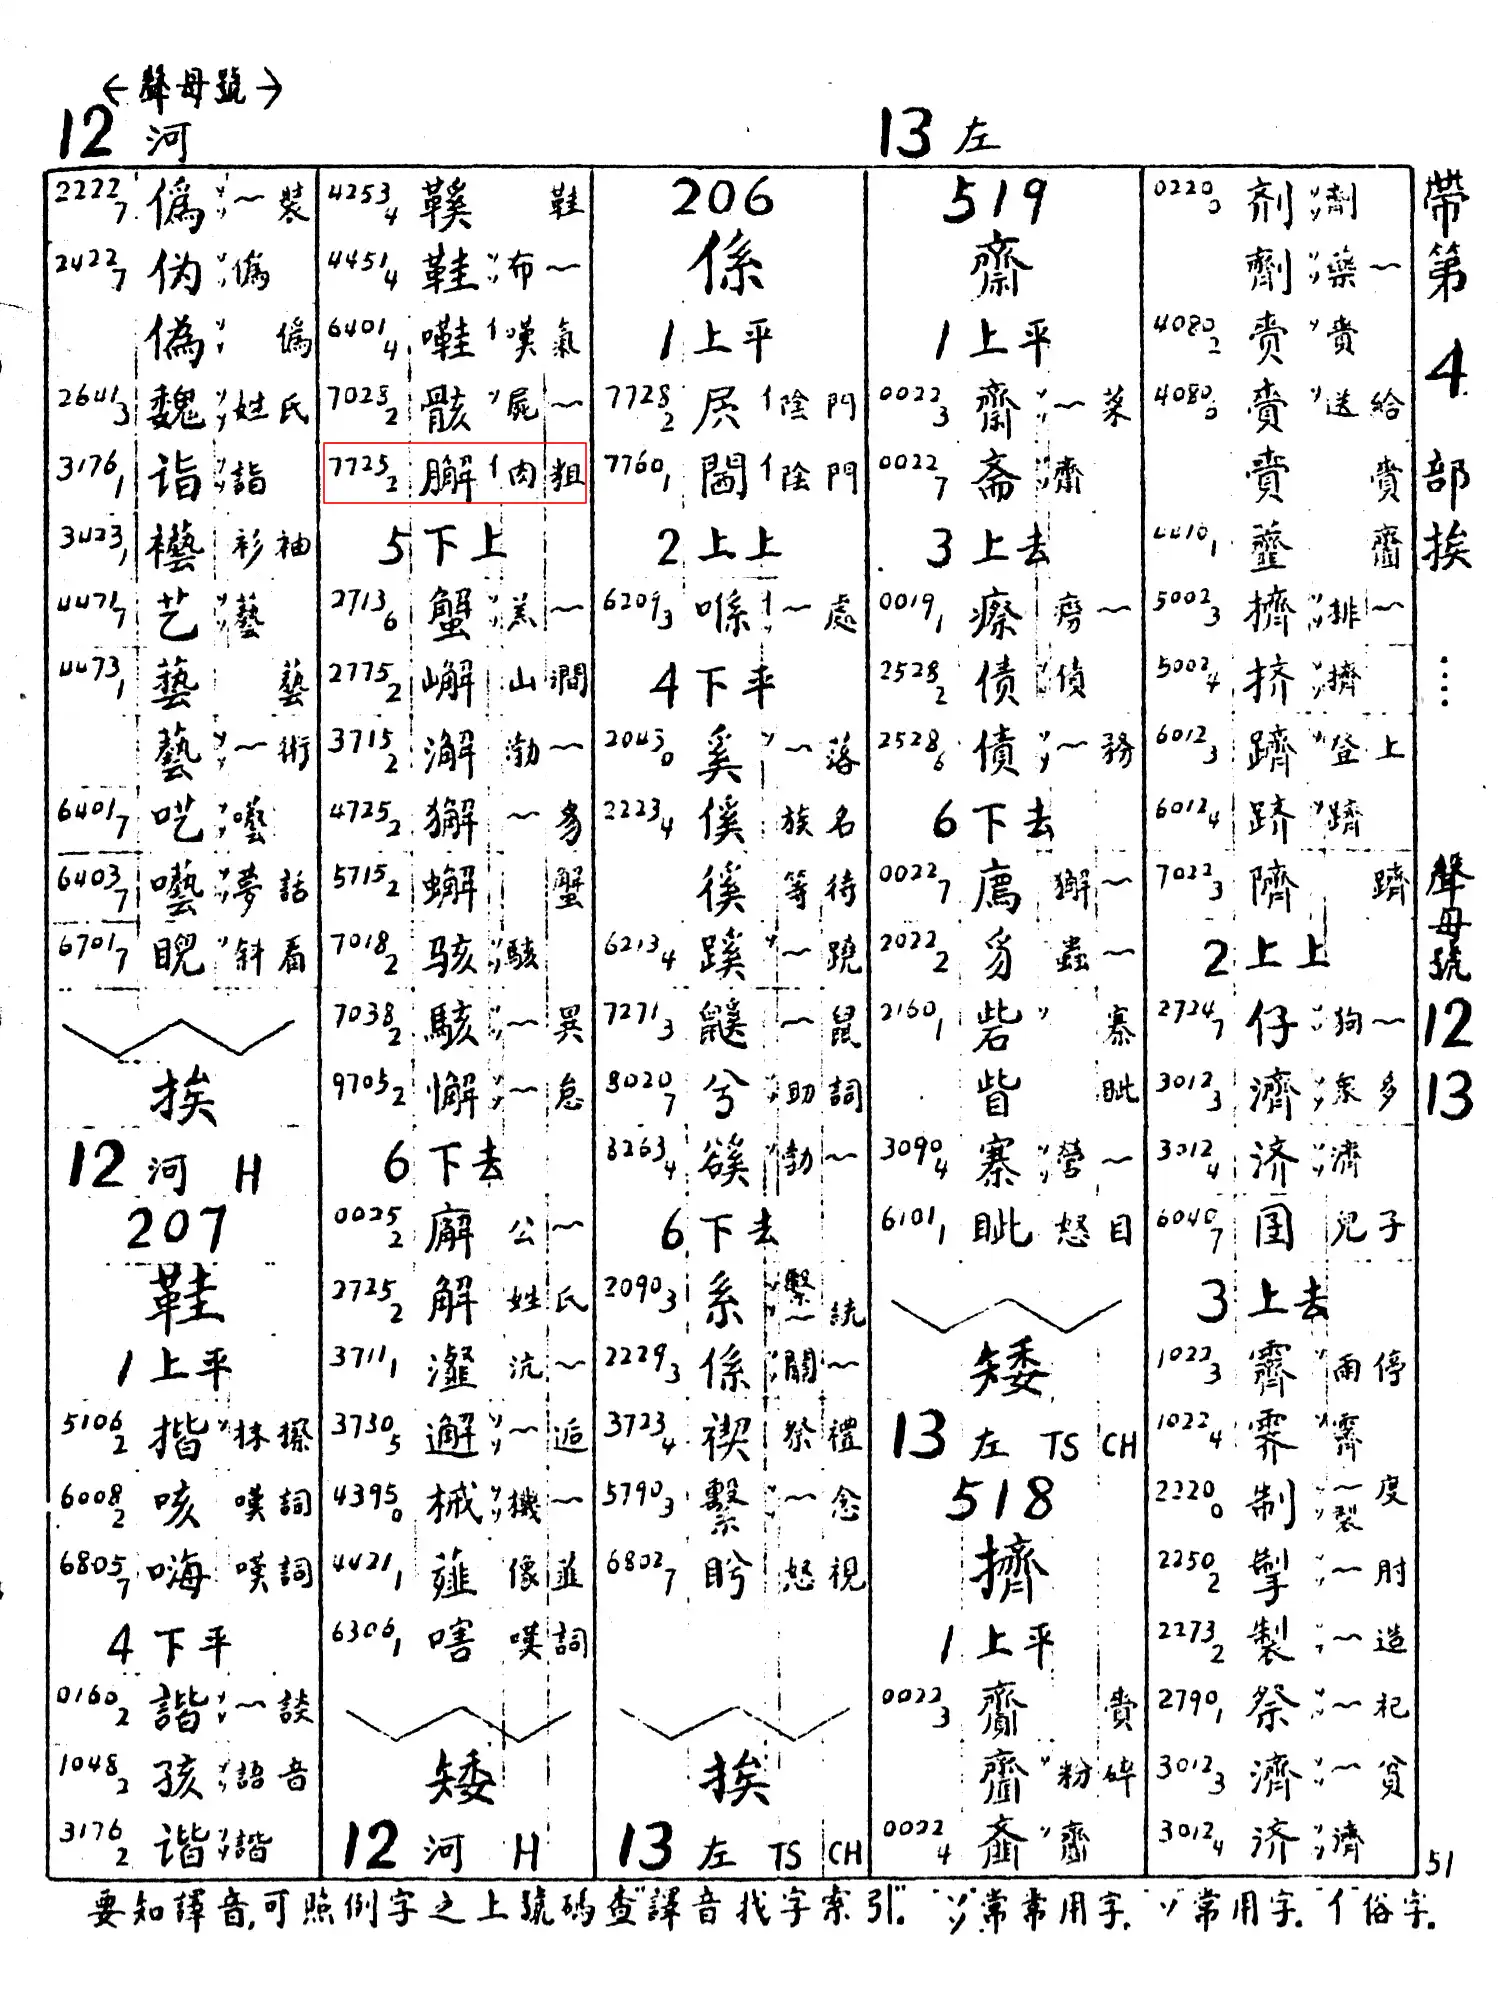 ←聲母號→
12 河
13 左
2222 7 僞 〃 ～裝
2422 7 伪 〃 僞
偽 〃 僞
2641 3 魏 〃 姓氏
3176 1 诣 〃 詣
3423 1 襼 衫袖
4471 7 艺 〃 藝
4473 1 藝
藝 〃 ～術
6401 7 呓 〃 囈
6403 7 囈 〃 夢話
6701 7 睨 〃 斜看
挨
12 河 H
207
鞋
1 上平
5106 2 揩 〃 抹擦
6008 2 咳 嘆詞
6805 7 嗨 嘆詞
4 下平
0160 2 諧 〃 ～談
1048 2 孩 〃 語音
3176 2 谐 〃 諧
4253 4 鞵 鞋
4451 4 鞋 〃 布～
6401 4 嘆氣
7028 2 骸 〃 屍～
7725 2 亻 肉粗
5 下上
2713 6 蟹 〃 羔～
2775 2 嶰 山澗
3715 2 澥 渤～
4725 2 獬 ～豸
5715 2 蠏 蟹
7018 2 骇 〃 駭
7038 2 駭 〃 ～異
9705 2 懈 〃 ～怠
6 下去
0025 2 廨 公～
2725 2 解 姓氏
3711 1 瀣 沆～
3730 5 邂 〃 ～逅
4395 0 械 〃 機～
4421 1 薤 像韮
6306 1 嗐 嘆詞
矮
12 河 H
206
係
1 上平
7728 2 亻 陰門
7760 1 亻 陰門
2 上上
6209 3 喺 亻 ～處
4 下平
2043 0 奚 〃 ～落
2223 4 傒 族名
徯 等待
6213 4 蹊 〃 ～蹺
7271 3 鼷 ～鼠
8020 7 兮 〃 助詞
8263 4 谿 〃 勃～
6 下去
2090 3 系 〃 繫 ～統
2229 3 係 〃 關～
3723 4 禊 祭禮
5790 3 繫 〃 ～念
6802 7 盻 怒視
挨
13 左 TS CH
519
齋
1 上平
0022 3 齋 〃 ～菜
0022 7 斋 〃 齋
3 上去
0019 1 瘵 癆～
2528 2 债 〃 債
2528 6 債 〃 ～務
6 下去
0022 7 廌 獬～
2022 2 豸 蟲～
2160 1 砦 〃 寨
眥 眦
3090 4 寨 〃 營～
6101 1 眦 怒目
矮
13 左 TS CH
518
擠
1 上平
0022 3 齎 賫
齏 〃 粉碎
0022 4 齑 〃 齏
0220 0 剂 〃 劑
劑 〃 藥～
4080 2 赍 〃 賫
4080 0 賫 〃 送給
賫
4410 1 虀 齏
5002 3 擠 〃 排～
5002 4 挤 〃 擠
6012 3 躋 〃 登上
6012 4 跻 〃 躋
7022 3 隮 躋
2 上上
2724 7 仔 〃 狗～
3012 3 濟 〃 衆多
3012 4 济 〃 濟
6040 7 囝 兒子
3 上去
1022 3 霽 〃 雨停
1022 4 霁 〃 霽
2220 0 制 〃 ～度 製
2250 2 掣 〃 ～肘
2273 2 製 〃 ～造
2790 1 祭 〃 ～祀
3012 3 濟 〃 ～貧
3012 4 济 〃 濟
帶第 4 部挨…聲母號 12 13
51
要知譯音,可照例字之上號碼查"譯音找字索引". "〃"常常用字. "〃"常用字. "亻"俗字.